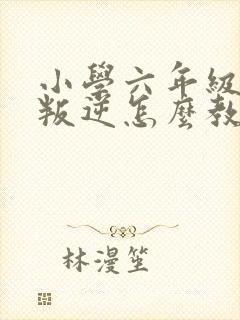 小學六年級
叛逆怎麼教
林漫笙